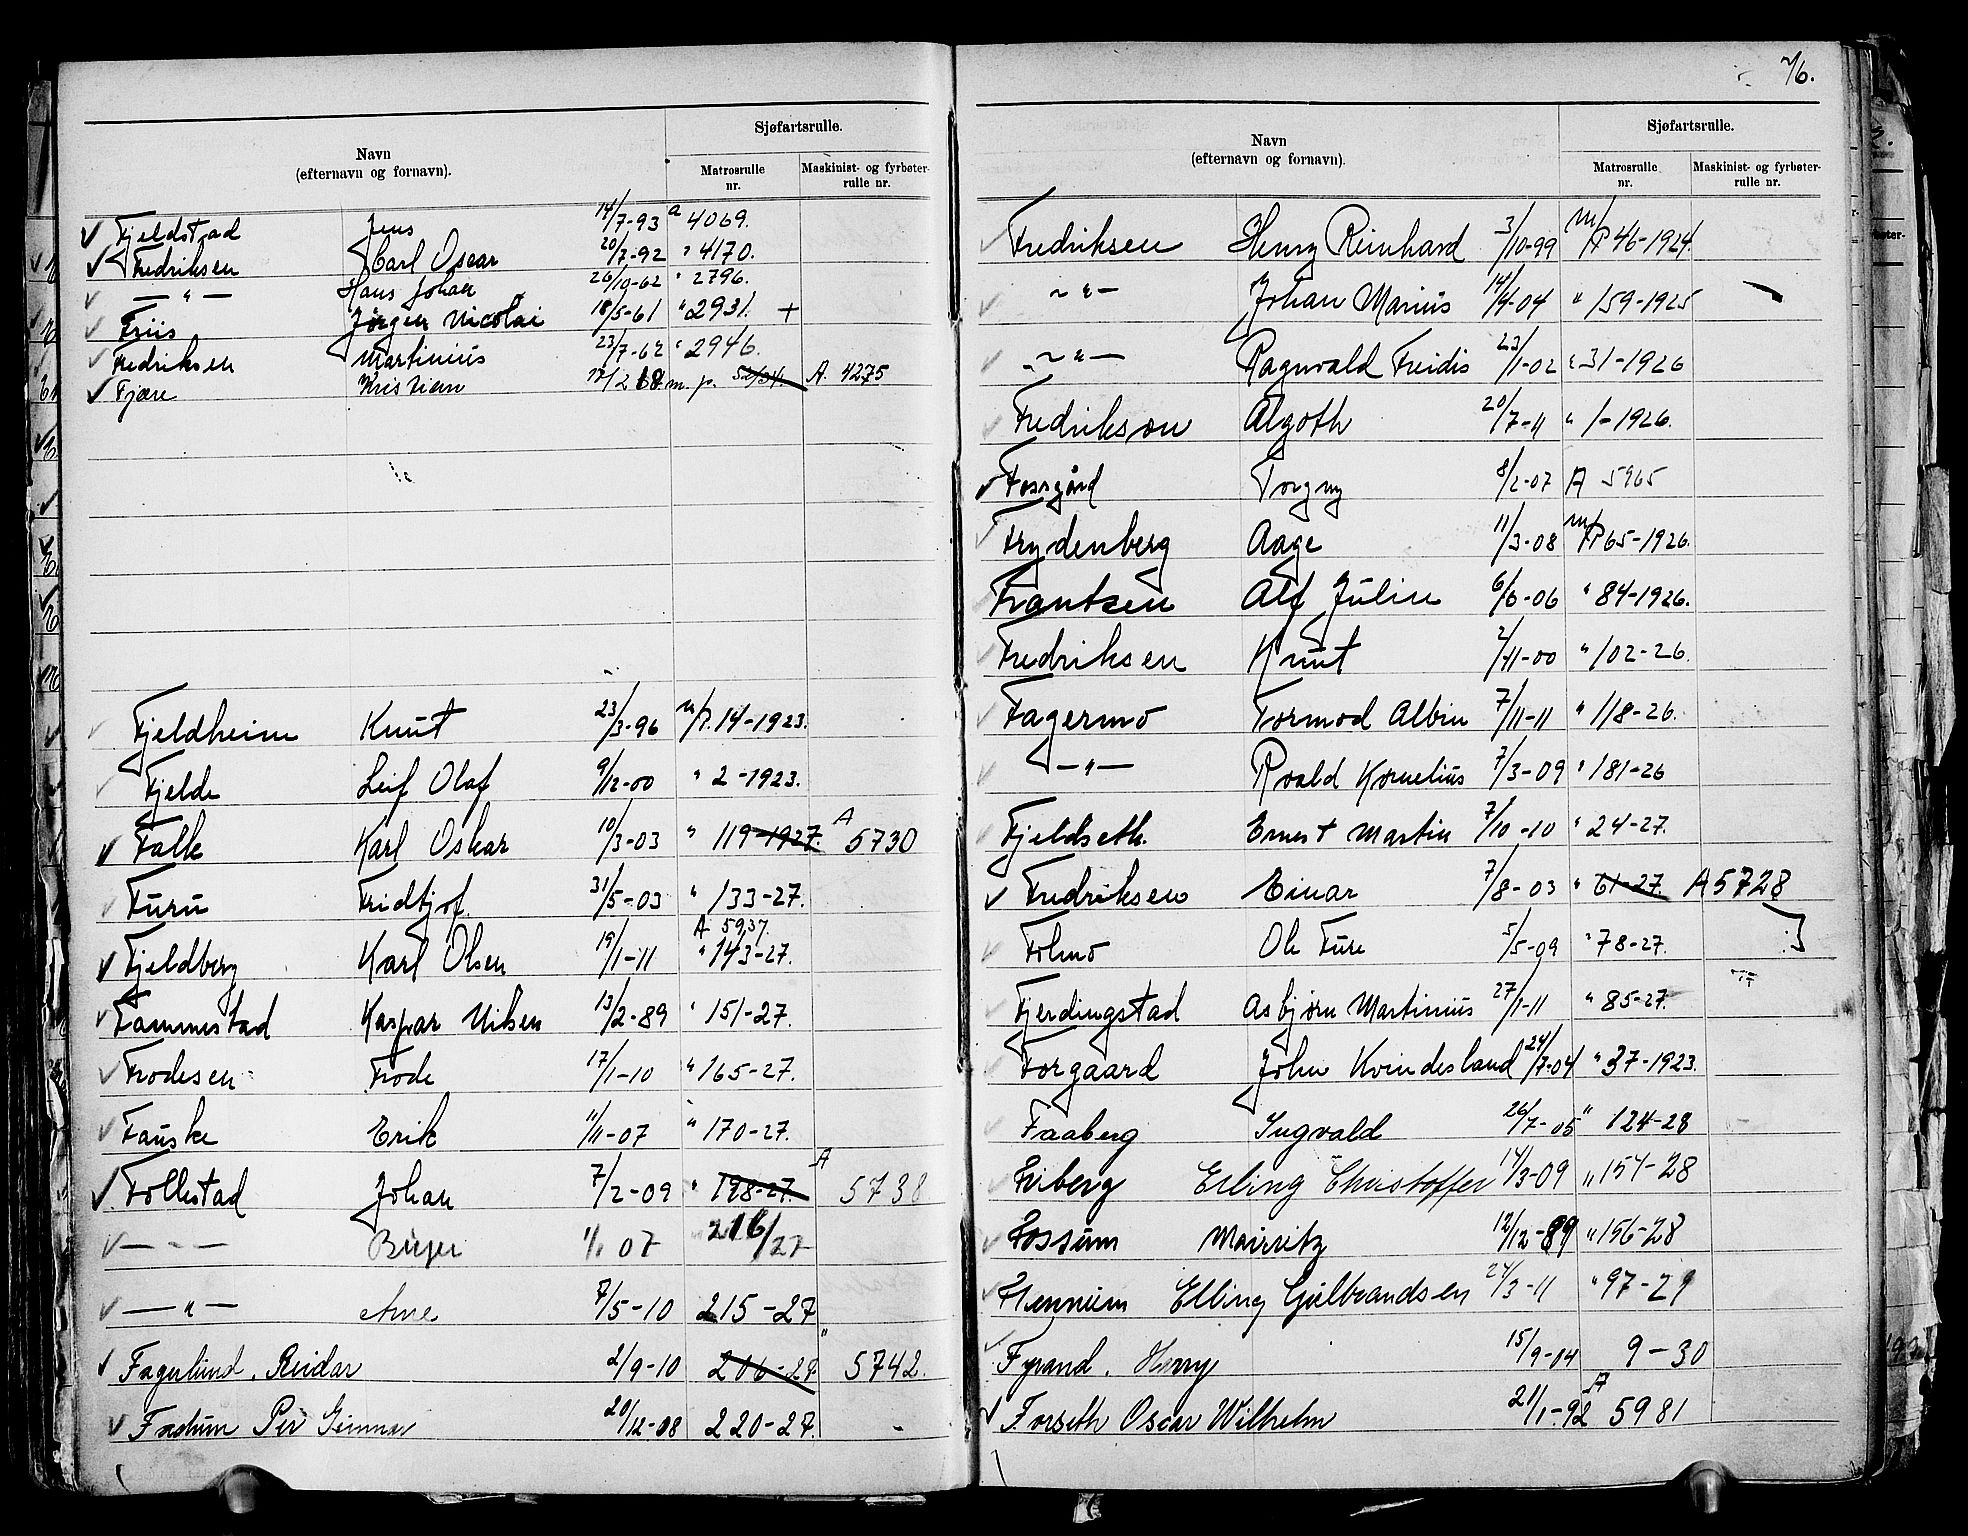 76.
Navn
(efternavn og fornavn).
Sjøfartsrulle.
Matrosrulle
nr.
Maskinist- og fyrbøter-
rulle nr.
Fjeldstad Jens 14/7-93 a 4069.
Fredriksen Carl Oscar 20/7-92 " 4170.
— " — Hans Johan 26/10-62 " 2796.
Friis Jörgen Nicolai 18/5-61 " 2931. +
Fredriksen Martinius 23/7-62 " 2946.
Fjære Kristian m. p. A. 4275
Fjeldheim Knut 23/3-96 m/p. 14-1923.
Fjelde Leif Olaf 9/12-00 " 2-1923.
Falk Karl Oskar 10/3-03 " 119-1927. A 5730
Furu Fridtjof 31/5-03 " 133-27.
A 5937.
Fjeldberg Karl Olsen 19/1-11 " 143-27.
Fammestad Kaspar Nilsen 13/2-89 " 151-27.
Frodesen Frode 17/1-10 " 165-27.
Fauske Erik 11/11-07 " 170-27.
Follestad Johan 7/2-09 " 198-27. A 5738
— " — Birger 1/1 07 216/27
— " — Arne 7/5-10 215-27
Fagerlund, Reidar 2/9-10 206-27. " 5742.
Fastum Per Gunnar 20/12-08 220-27. -
Navn
(efternavn og fornavn).
Sjøfartsrulle.
Matrosrulle
nr.
Maskinist- og fyrbøter-
rulle nr.
Fredriksen Henry Reinhard 3/10-99 m/P 46-1924.
— " — Johan Marius 14/4-04 " 159-1925
— " — Ragnvald Freidis 23/1-02 " 31-1926
Fredrikson Algoth 20/7-11 " 1-1926.
Fossgård Torgny 8/2-07 A 5965
Frydenberg Aage 11/3-08 m/P 65-1926.
Frantsen Alf Julin 6/6-06 " 84-1926.
Fredriksen Knut 2/11-00 " 102-26.
Fagermo Tormod Albin 7/11-11 " 118-26.
— " — Roald Kornelius 7/3-09 " 181-26
Fjeldseth. Ernest Martin 7/10-10 " 24-27.
Fredriksen Einar 7/8-03 " 61-27. A 5728
Folmo Ole Ture 5/5-09 " 78-27.
Fjerdingstad Asbjørn Martinius 27/1-11 " 85-27.
Forgaard John Kvindesland 24/7-04 " 37-1923.
Faaberg Ingvald 26/7-05 " 124-28
Friberg Erling Christoffer 14/3-09 " 154-28
Fossum Mauritz 12/12-89 " 156-28
Flennum Elling Gulbrandsen 24/3-11 " 97-29
Fyrand, Harry 15/9-04 9-30
Forseth Oscar Wilhelm 21/1-92 A 5981